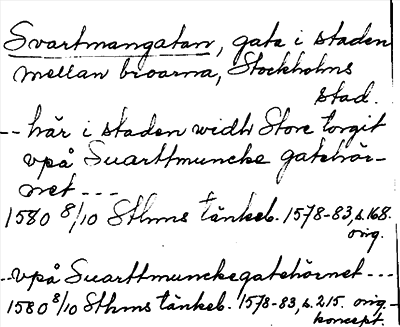 Svartmangatan, gata i staden
mellan broarna, Stockholms
stad.
-- här i staden widh Store torgit
vpå Suarttmuncke gatehör-
net ---
1580 8/10 Sthms tänkeb. 1578-83, s. 168.
orig.
-- vpå Suarttmunckegatehörnet ---
1580 8/10 Sthms tänkeb. 1578-83, s. 215. orig.-
koncept.